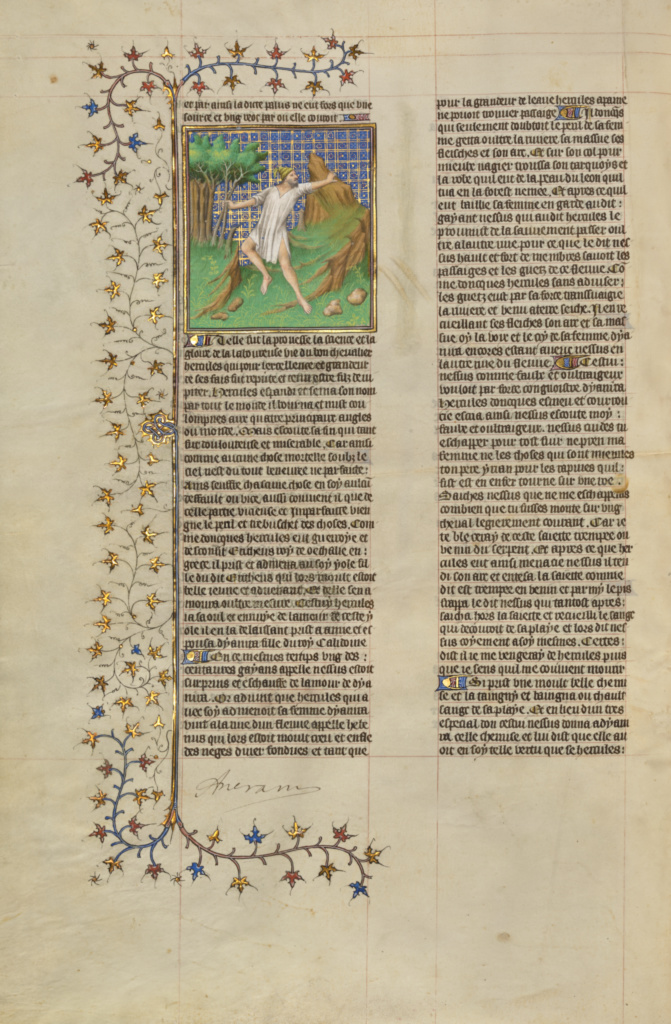 et par ainsi la dicte palus ne eut fors que une
source et ung troc par ou elle couroit
Telle fut la prouesse la science et la
gloire de la laboureuse vie du bon chevalier
hercules qui pour l'excellence et grandeur
de ses fais fut repute et tenu estre filz de iu
piter. Hercules espandi et sema son nom
par tout le monde il tourna et mist cou
lompnes aux quatre principaulx angles
du monde. Mais escoute sa fin qui tant
fut douloureuse et miserable. Car ainsi
comme aucune chose mortelle soubz le
ciel n'est du tout beneuree ne parfaicte:
Ains seuffre chascune chose en soy aulcun
deffault ou vice, aussi convient il que de
celle partie vicieuse et imparfaicte vien
gne le peril et trebuschet des choses. Com
me doncques hercules eut guerroye et
desconfit Eutheus roy de oechalie en
grece il prist et admena avec soy yole fil
le du dit Eutheus qui lors moult estoit
belle jeune et advenant. Et d'elle sen a
moura oultre mesure. Cestuy hercules
la saoul et ennuye de lamour de ceste y
ole il en la delaissant prist a aime et es
pousa dyanira fille du roy Calidoine
En ce mesmes temps ung des
centaures gayans appelle nessus estoit
surprins et eschauffe de lamour de dya
nira. Or advint que hercules qui a
vec soy admenoit sa femme dyanira
vint a la rive dun fleuve appelle hebe
nus qui lors estoit moult creu et enfle
des neges d'iver fondues et tant que
pour la grandeur de leaue hercules apaine
ne povoit trouver passaige Il doncques
qui seulement doubtoit le peril de sa fem
me getta oultre la riviere sa massue ses
fleisches et son arc. Et sur son col pour
mieulx nagier troussa son carquoys et
la robe qui fut de la peau du leon quil
tua en la forest nemee. Et apres ce quil
eut baillee sa femme en garde audit
gayant nessus qui audit hercules le
promist de la sauvement passer oul
tre a lautre rive pour ce que le dit nes
sus hault et fort de membres savoit les
passaiges et les guetz de ce fleuve. Co
me doncques hercules sans adviser
les guetz eut par sa force transnaige
la riviere et venu a terre seiche. Il en re
cueillant ses fleiches son arc et sa mas
sue oy la voix et le cry de sa femme dya
nira encores estant avecc nessus en
lautre rive du fleuve. Cestui
nessus comme faulx et oultraigeux
vouloit par force congnoistre dyanira
Hercules doncques esmeu et courrou
cie escria ainsi. nessus escoute moy
faulx et oultraigeux. nessus cuides tu
eschapper pour tost fuir ne pren ma
femme ne les choses qui sont miennes
ton pere yxion pour les rapines quil
fist est en enfer tourne sur une roe
Saiches nessus que ne me eschapperas
combien que tu fusses monte sur ung
cheval legierement courant. Car je
te bleceray de ceste saiette trempee ou
venin du serpent. Et apres ce que her
cules eut ainsi menacie nessus il ten
di son arc et entesa la saiette comme
dit est trempee en venin et parmy le pis
frappa le dit nessus qui tantost apres
saicha hors la saiette et recueilli le sange
qui decouroit de sa playe et lors dit nes
sus coyement a soy mesmes. Certes
dist il je me vengeray de hercules puis
que je sens quil me couvient mourir
Si prist une moult belle chemi
se et la taingny et baingna ou chault
sange de sa playe. Et en lieu dun tres
especial don cestui nessus donna a dyani
ra celle chemise et lui dist que elle au
oit en soy telle vertu que se hercules